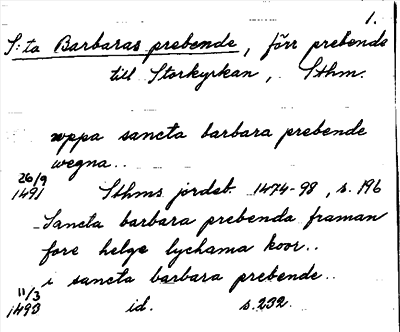 1.
S:ta Barbaras prebende, förr prebende
till Storkyrkan, Sthm.
uppa sancta barbara prebende
wegna..
26/9
1491 Sthms jordeb. 1474-98, s. 196
Sancta barbara prebenda framan
fore helge lychama koor..
i sancta barbara prebende..
11/3
1493 id. s. 232.